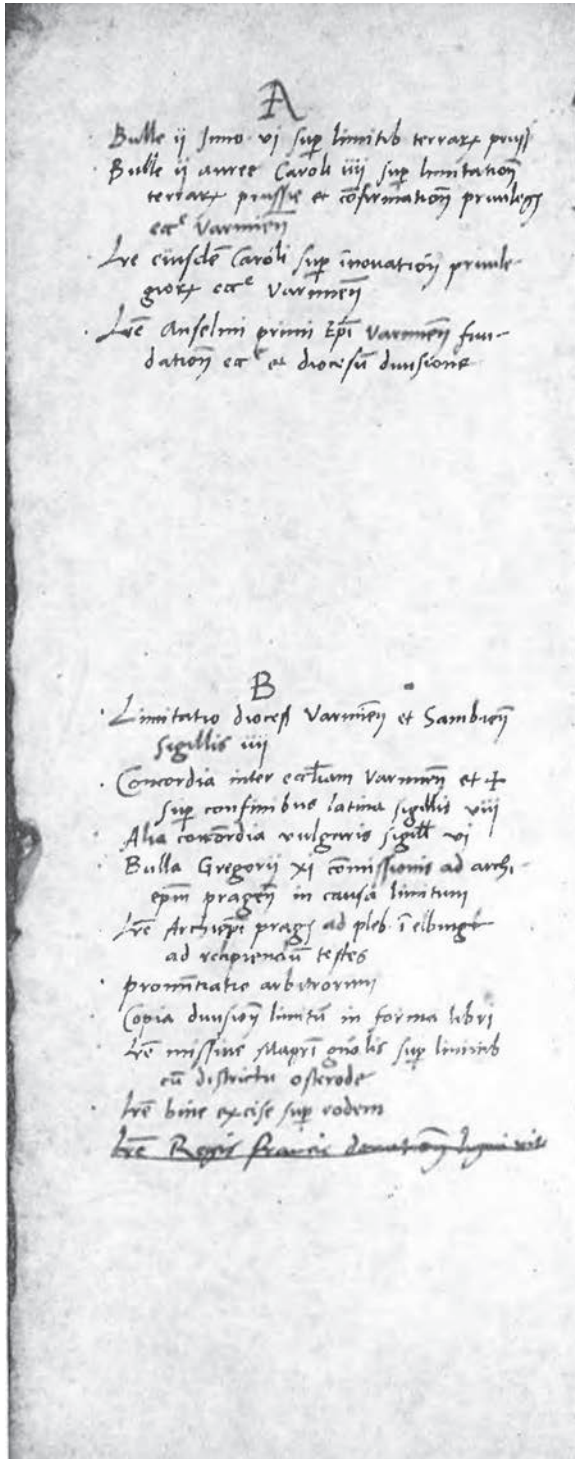 A
Bulle ij Inno· vi sup limitib terrarꝝ pruss
Bulle ij auree Caroli iiij sup limitatioñ
terrarꝝ prussie et cōfirmatioñ privilegꝫ
eccᵉ Varmieñ
Lre eiusdē Caroli sup īnovatioñ privile-
giorꝝ eccᵉ Varmieñ
Lrē Anselmi primi Ep̄i Varmieñ fun-
datioñ eccᵉ et diocesū divisione
B
Limitatio dioces Varmieñ et Sambieñ
sigillis iiij
Concordia inter eccliam Varmieñ et ✢
sup confinibus latina sigillis viij
Alia concordia vulgaris sigill vi
Bulla Gregorij xi cōmissionis ad archi-
epm prageñ in causa limitum
Lrē Archiep̄i prag ad pleb ī elbinge
ad recipiendū testes
pronūtiatio arbitrorum
Copia divisioñ limitū in forma libri
Lrē missive Mag̅ri gn̄olis sup limitib
cū districtu osterode
Lrē bine excise sup eodem
Lrē Regis francie donatioñ ligni vite